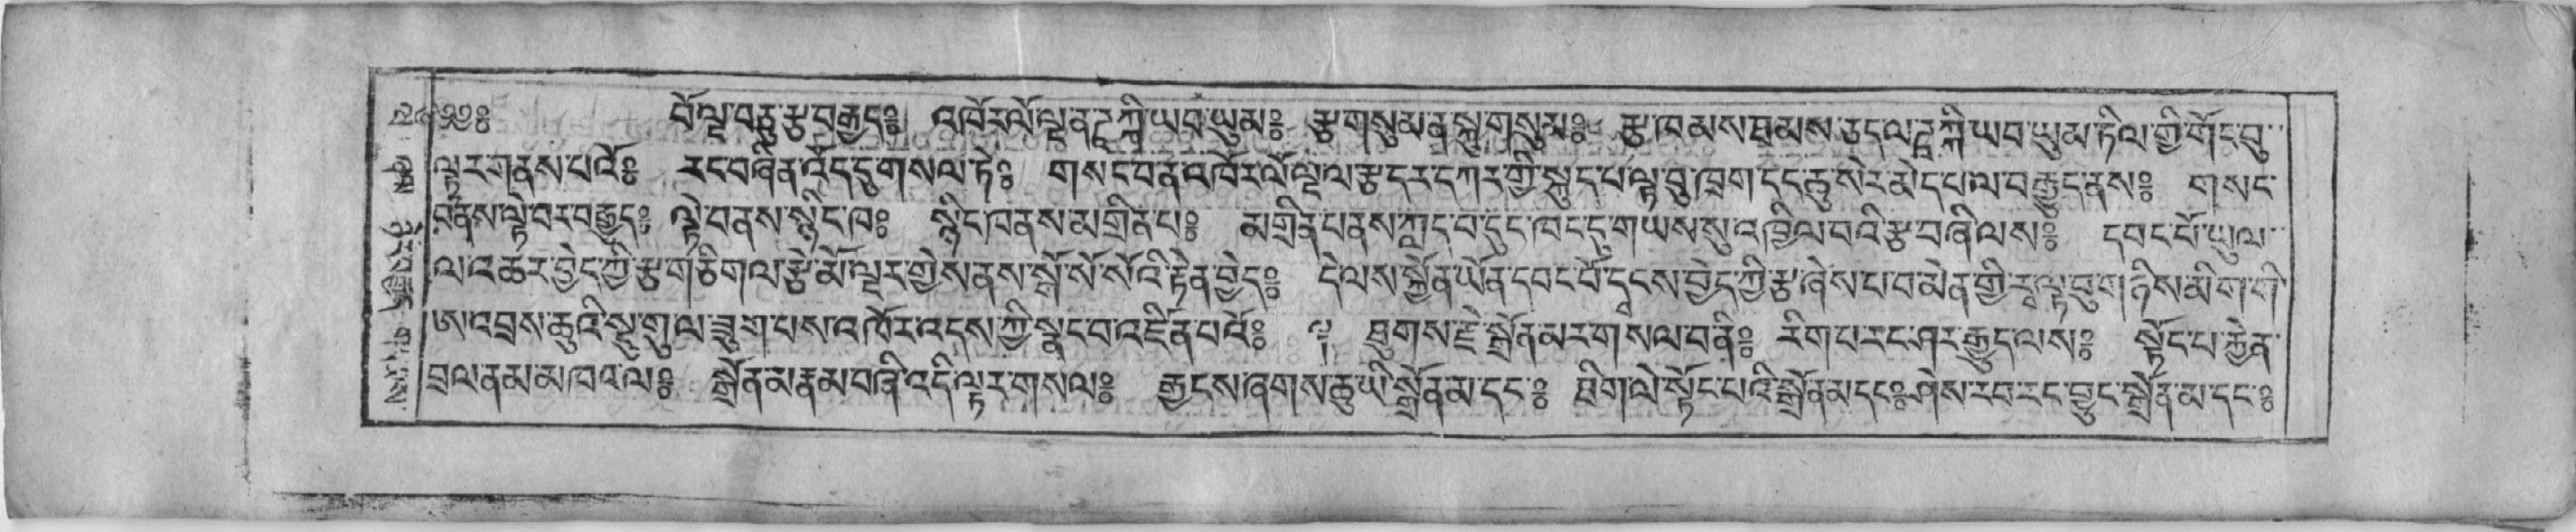 བོལྔ་བརྩ་རྩ་བརྒྱད༔ འཁོར་ལོ་ལྔ་ན་ཌཱཀྐི་ཡབ་ཡུམ༔ རྩ་གསུམ་ན་སྐུ་གསུམ༔ རྩ་ཁམས་ཐམས་ཅད་ལ་ཌཱཀྐི་ཡབ་ཡུམ་ཏིལ་གྱི་གོང་བུ་
ལྟར་གནས་པའོ༔ རང་བཞིན་འོད་དུ་གསལ་ཏེ༔ གསང་བན་འཁོར་ལོ་ལྔ་ལ་རྩ་དར་དཀར་གྱི་སྐུད་པ་ལྟ་བུ་ཁྲག་དང་ཆུ་སེར་མེད་པ་ལ་བརྒྱུད་ནས༔ གསང་
བནས་ལྟེ་བར་བརྒྱུད༔ ལྟེ་བནས་སྙིང་ཁ༔ སྙིང་ཁནས་མགྲིན་པ༔ མགྲིན་པནས་ཀླད་པ་དུང་ཁང་དུ་གཡས་སུ་འཁྱིལ་བའི་རྩ་བཞི་ལས༔ དབང་པོ་ཡུལ་
ལ་འཆར་བྱེད་ཀྱི་རྩ་གཅིག་ལ་རྩེ་མོ་ལྔར་གྱེས་ནས་སྒོ་སོ་སོའི་རྟེན་བྱེད༔ དེ་ལས་སྐྱོན་ཡོན་དབང་པོ་དྭངས་བྱེད་ཀྱི་རྩ་ཞེས་པ་བ་མེན་གྱི་རྭ་ལྟ་བུ་གཉིས་མིག་གི་
ཨ་འབྲས་ཆུའི་སྔ་གུ་ལ་ཟུག་པས་འཁོར་འདས་ཀྱི་སྣང་བ་འཛིན་པའོ༔ ཐུགས་རྗེ་སྒྲོན་མར་གསལ་བནི༔ རིག་པ་རང་ཤར་རྒྱུད་ལས༔ སྟོང་པ་རྐྱེན་
བྲལ་ནམ་མཁའ་ལ༔ སྒྲོན་མ་རྣམ་བཞི་འདི་ལྟར་གསལ༔ རྒྱངས་ཞགས་ཆུ་ཡི་སྒྲོན་མ་དང༔ ཐིག་ལེ་སྟོང་པའི་སྒྲོན་མ་དང༔ ཤེས་རབ་རང་བྱུང་སྒྲོན་མ་དང༔